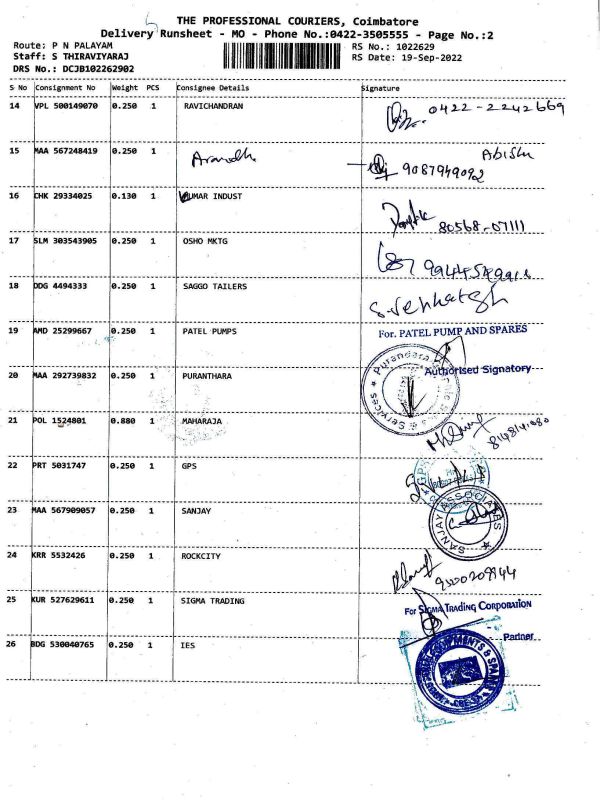 THE PROFESSIONAL COURIERS, Coimbatore
Delivery Runsheet - MO - Phone No.:0422-3505555 - Page No.:2
Route: P N PALAYAM
RS No.: 1022629
Staff: S THIRAVIYARAJ
RS Date: 19-Sep-2022
DRS No.: DCJB102262902
S No Consignment No Weight PCS Consignee Details Signature
14 VPL 500149070 0.250 1 RAVICHANDRAN 0422-2242669
15 MAA 567248419 0.250 1 9087949092
16 CHK 29334025 0.130 1 KUMAR INDUST 80568-07111
17 SLM 303543905 0.250 1 OSHO MKTG
18 DDG 4494333 0.250 1 SAGGO TAILERS S.Venkatesh
19 AMD 25299667 0.250 1 PATEL PUMPS For. PATEL PUMP AND SPARES
Authorised Signatory
20 MAA 292739832 0.250 1 PURANTHARA
21 POL 1524801 0.880 1 MAHARAJA
22 PRT 5031747 0.250 1 GPS
23 MAA 567909057 0.250 1 SANJAY SANJAY ASSOCIATES
24 KRR 5532426 0.250 1 ROCKCITY
25 KUR 527629611 0.250 1 SIGMA TRADING For SIGMA TRADING CORPORATION
Partner
26 BDG 530040765 0.250 1 IES